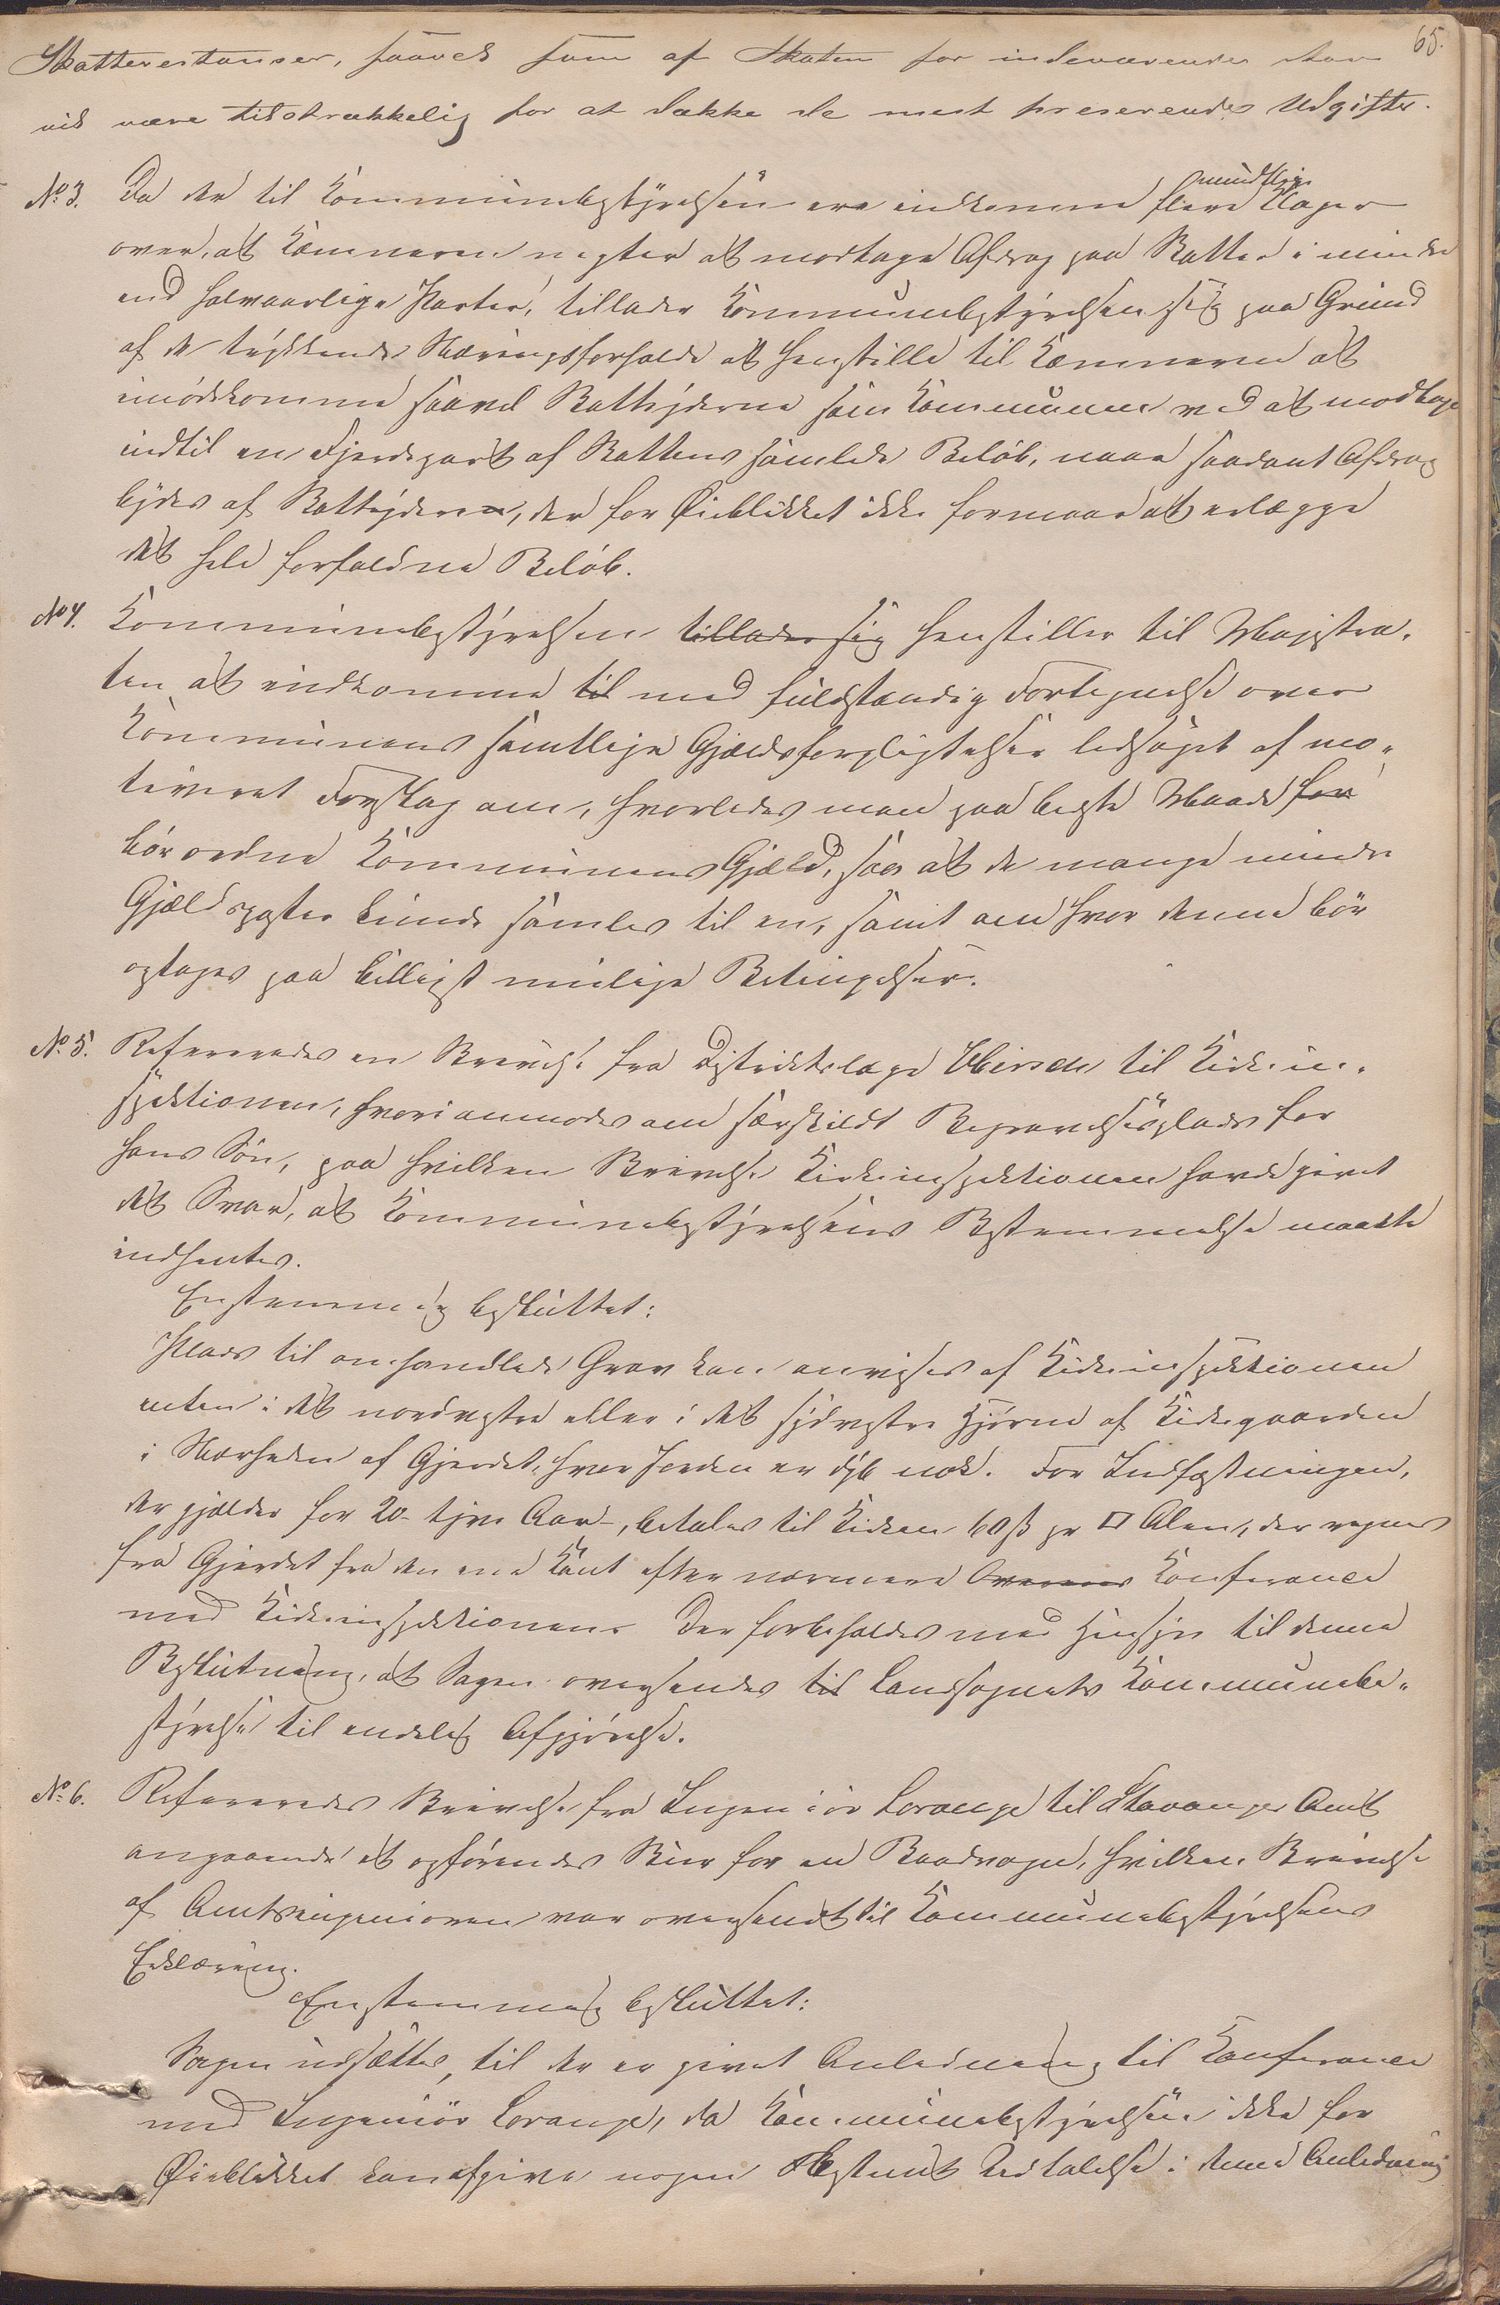 65.
Skatterestanser, saavel som af Skaten for indeværende Aar
vil være tilstrækkelig for at dække de mest preserende Udgifter.
No 3. Da der til Kommunebestyrelsen ere indkomne flere mundtlige Klager
over, at Kæmneren negter at modtage Afdrag paa Skatter i mindre
end halvaarlige Parter, tillader Kommunebestyrelsen sig paa Grund
af de trykkende Næringsforholde at henstille til Kæmneren at
imødekomme saavel Skatteyderne som Kommunen ved at modtage
indtil en Fjerdepart af Skattens samlede Beløb, naar saadant Afdrag
bydes af Skatteydere, der for Øieblikket ikke formaar at erlægge
det hele forfaldne Beløb.
No 4. Kommunebestyrelsen tillader sig henstiller til Magistra-
ten at indkomme til med fuldstændig Fortegnelse over
Kommunens samtlige Gjældsforpligtelser ledsaget af mo-
tiveret Forslag om, hvorledes man paa bedste Maade for
bør ordne Kommunens Gjæld, saa at de mange mindre
Gjældsposter kunde samles til en, samt om hvor denne bør
optages paa billigst mulige Betingelser.
No 5. Refereredes en Skrivelse fra Distriktslæge til Kirkein-
spektionen, hvori anmodes om særskildt Begravelsesplads for
hans Søn, paa hvilken Skrivelse Kirkeinspektionen havde givet
det Svar, at Kommunebestyrelsens Bestemmelse maatte
indhentes.
Enstemmig besluttet:
Plads til omhandlede Grav kan anvises af Kirkeinspektionen
enten i det nordvestre eller i det sydvestre Hjørne af Kirkegaarden
i Nærheden af Gjerdet, hvor Jorden er dyb nok. For Indfæstningen,
der gjælder for 20 - tyve Aar -, betales til Kirken 60 ß pr □ Alen, der regnes
fra Gjerdet fra den ene Kant efter nærmere Konferance
med Kirkeinspektionen. Der forbeholdes med Hensyn til denne
Beslutning, at Sagen oversendes til Landsognets Kommunebe-
styrelse til endelig Afgjørelse.
No 6. Refereredes Skrivelse fra Ingeniør Lorange til Stavanger Amt
angaaende et opførendes Skur for en Baadvogn, hvilken Skrivelse
af Amtsingeniøren var oversendt til Kommunebestyrelsens
Erklæring.
Enstemmig besluttet:
Sagen udsættes, til der er givet Anledning til Konferance
med Ingeniør Lorange, da Kommunebestyrelsen ikke for
Øieblikket kan afgive nogen Bestemt Udtalelse i denne Anledning